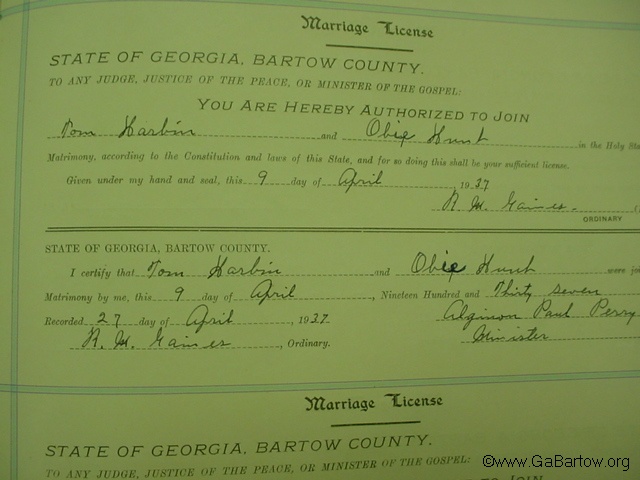 Marriage License
STATE OF GEORGIA, BARTOW COUNTY.
TO ANY JUDGE, JUSTICE OF THE PEACE, OR MINISTER OF THE GOSPEL:
YOU ARE HEREBY AUTHORIZED TO JOIN
Tom Harbin and Obie Hunt in the Holy Sta
Matrimony, according to the Constitution and laws of this State, and for so doing this shall be your sufficient license.
Given under my hand and seal, this 9 day of April, 1937
R. M. Gaines.
ORDINARY
STATE OF GEORGIA, BARTOW COUNTY.
I certify that Tom Harbin and Obie Hunt were joi
Matrimony by me, this 9 day of April, Nineteen Hundred and Thirty seven
Recorded 27 day of April, 1937. Alginon Paul Perry
R. M. Gaines, Ordinary. Minister
Marriage License
STATE OF GEORGIA, BARTOW COUNTY.
TO ANY JUDGE, JUSTICE OF THE PEACE, OR MINISTER OF THE GOSPEL:
©www.GaBartow.org